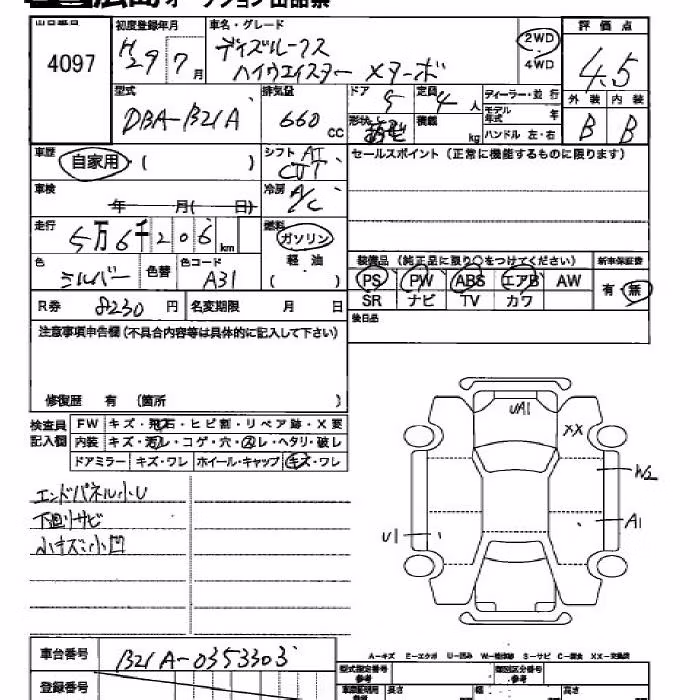 広島 オークション 出品票
出品番号 初度登録年月 車名・グレード 2WD 評価点
4097 H29 7月 デイズルークス 4WD 4.5
ハイウェイスター Xターボ
型式 排気量 ドア 5 定員 4人 ディーラー・並行 外装 内装
DBA-B21A 660cc 形状 積載 kg モデル年式 年 B B
ハンドル 左・右
車歴 自家用 ( ) シフト AT CVT セールスポイント(正常に機能するものに限ります)
車検 年 月( 日) 冷房 A/C
走行 5万6千206km 燃料 ガソリン
色 シルバー 色替 色コード A31 軽油
( )
装備品(純正品に限り○をつけてください) 新車保証書
PS PW ABS エアB AW 有・無
SR ナビ TV カワ
R券 8230円 名変期限 月 日
後日品
注意事項申告欄(不具合内容等は具体的に記入して下さい)
修復歴 有 (箇所 )
検査員記入欄 FW キズ・飛石・ヒビ割・リペア跡・X要
内装 キズ・汚レ・コゲ・穴・スレ・ヘタリ・破レ
ドアミラー キズ・ワレ ホイール・キャップ キズ・ワレ
エンドパネル小U
下廻りサビ
小キズ小凹
UA1
XX
W2
A1
U1
A-キズ E-エクボ U-凹み W-補修跡 S-サビ C-腐食 XX-交換済
車台番号 B21A-0353303
登録番号
型式指定番号 類別区分番号
長さ 幅 高さ